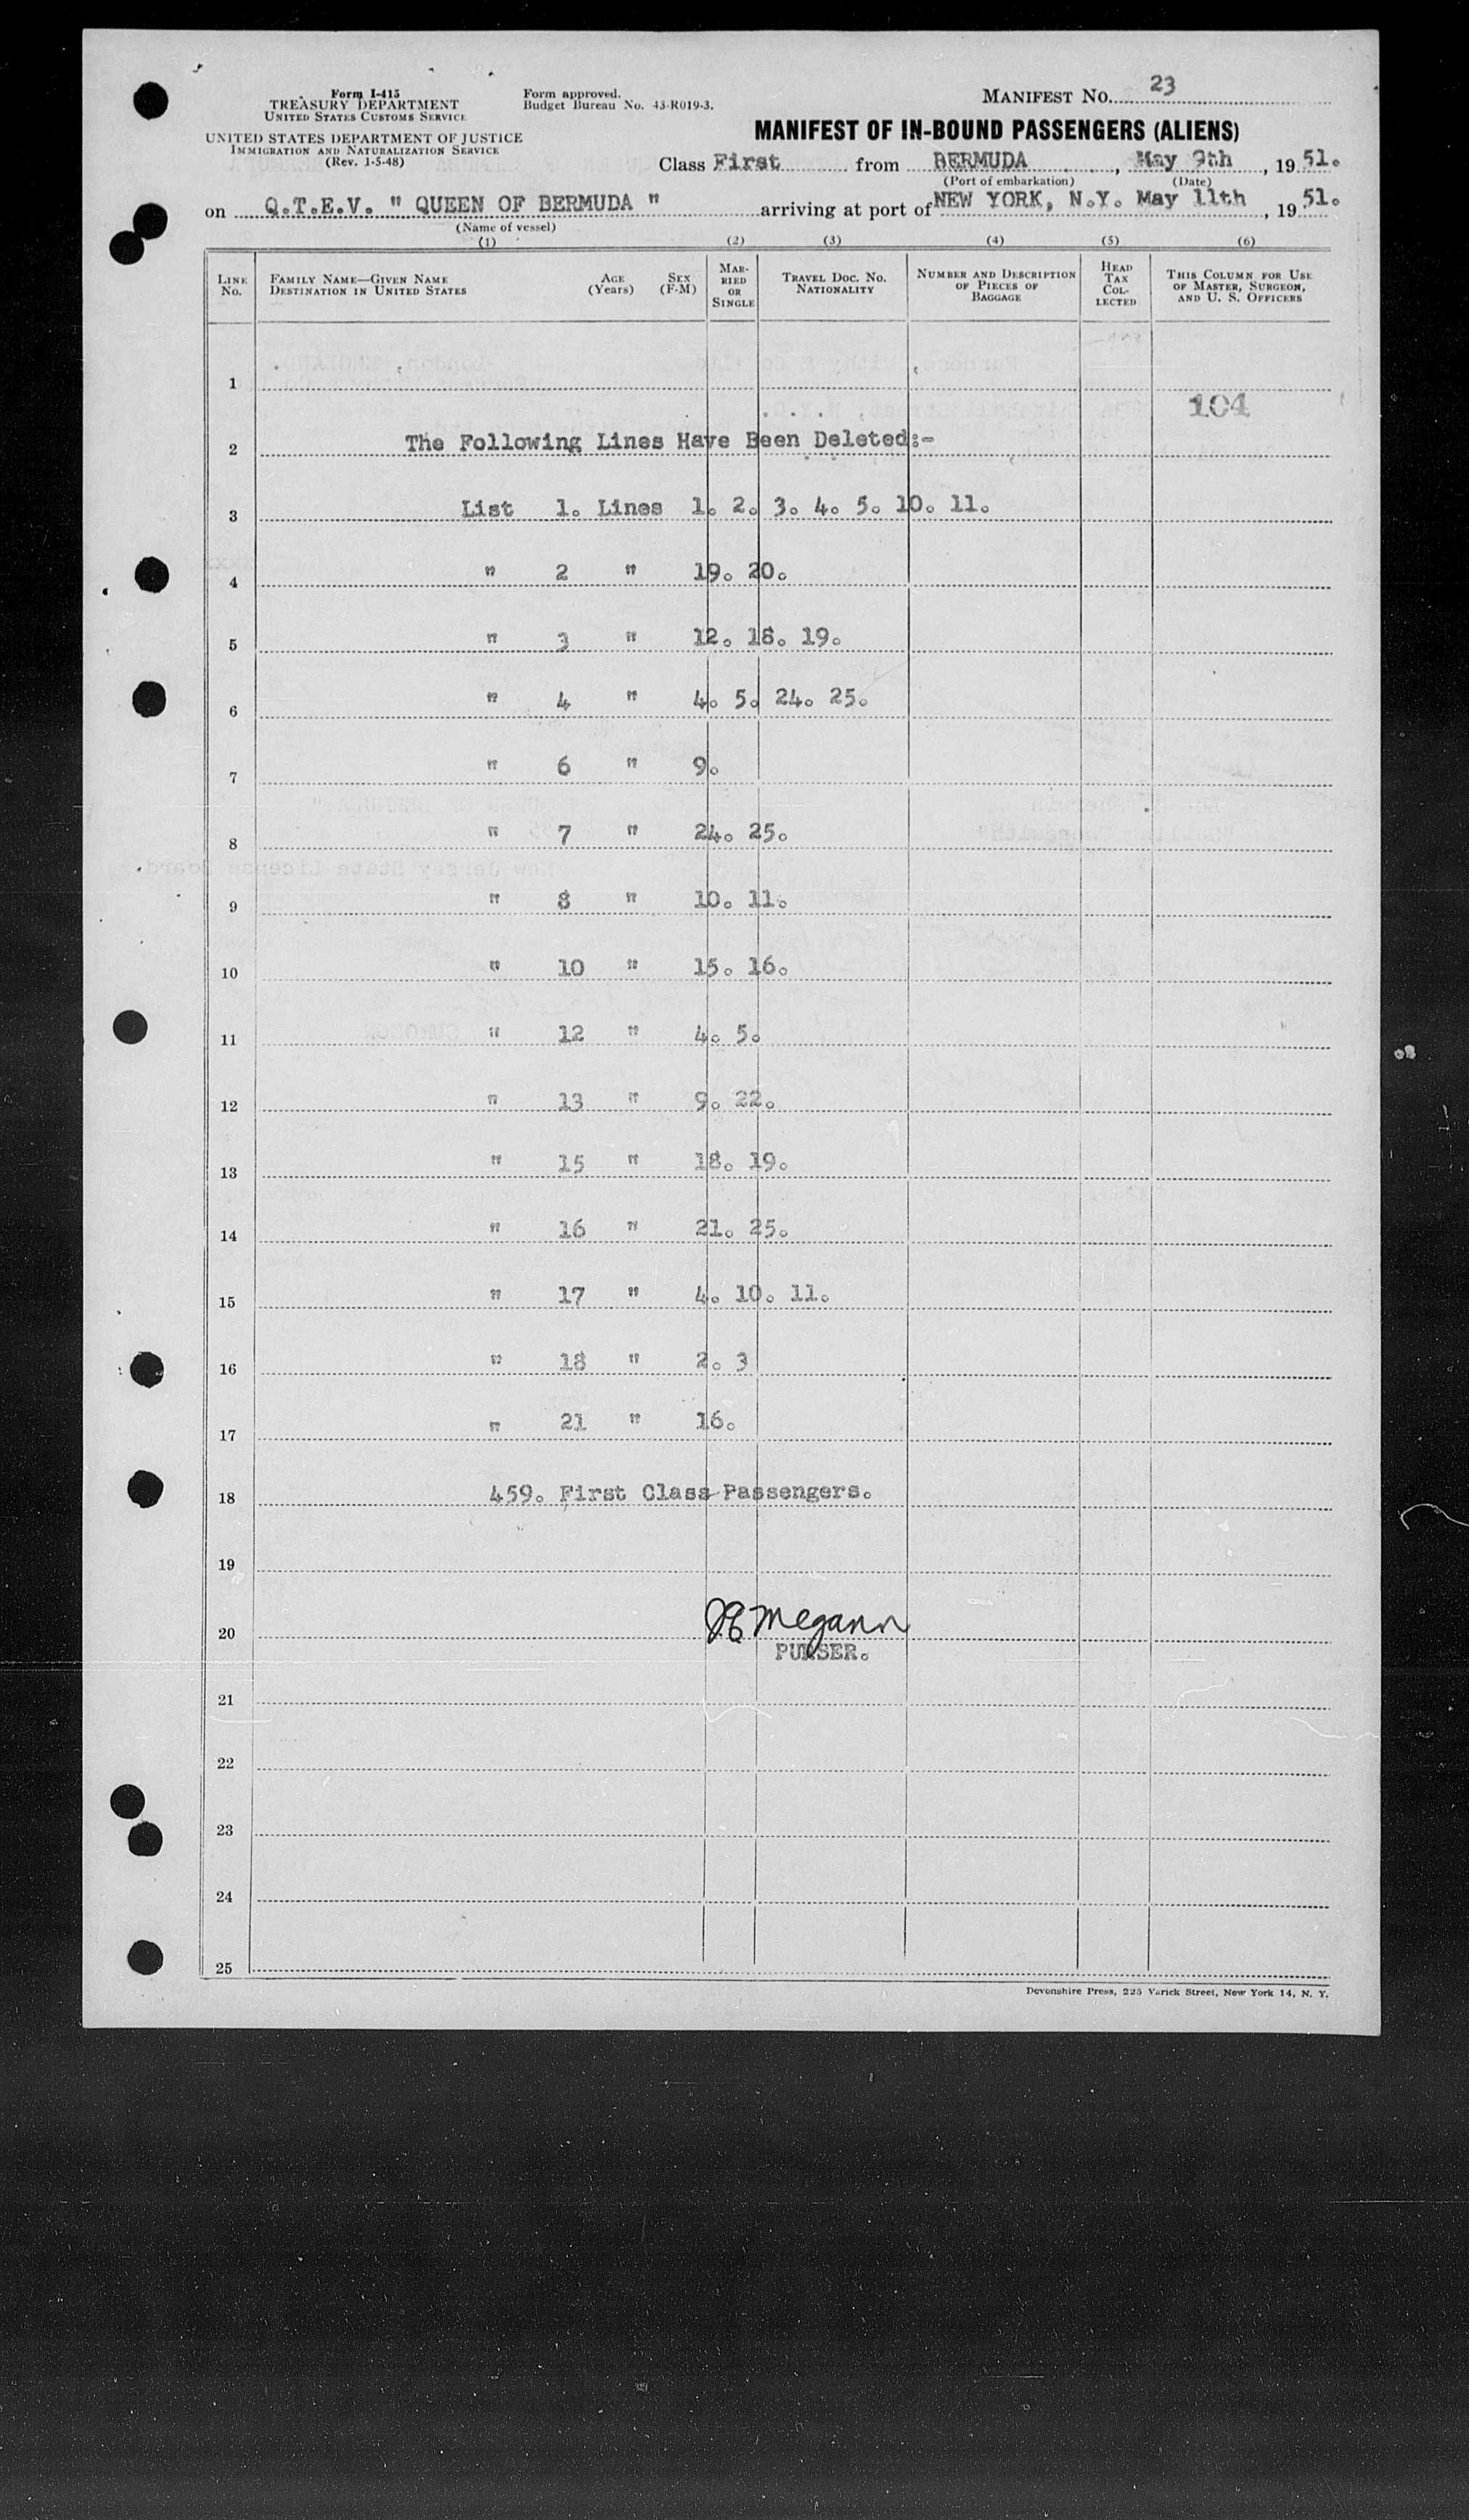 Form I-415
TREASURY DEPARTMENT
UNITED STATES CUSTOMS SERVICE
UNITED STATES DEPARTMENT OF JUSTICE
IMMIGRATION AND NATURALIZATION SERVICE
(Rev. 1-5-48)
Form approved.
Budget Bureau No. 43-R019-3.
MANIFEST NO. 23
MANIFEST OF IN-BOUND PASSENGERS (ALIENS)
Class First from BERMUDA, May 9th, 19 51.
(Port of embarkation) (Date)
on Q.T.E.V. " QUEEN OF BERMUDA " arriving at port of NEW YORK, N.Y. May 11th, 19 51.
(Name of vessel)
(1) (2) (3) (4) (5) (6)
LINE NO. FAMILY NAME—GIVEN NAME DESTINATION IN UNITED STATES AGE (Years) SEX (F-M) MARRIED OR SINGLE TRAVEL DOC. NO. NATIONALITY NUMBER AND DESCRIPTION OF PIECES OF BAGGAGE HEAD TAX COLLECTED THIS COLUMN FOR USE OF MASTER, SURGEON, AND U. S. OFFICERS
1
104
2 The Following Lines Have Been Deleted:-
3 List 1. Lines 1. 2. 3. 4. 5. 10. 11.
4 " 2 " 19. 20.
5 " 3 " 12. 18. 19.
6 " 4 " 4. 5. 24. 25.
7 " 6 " 9.
8 " 7 " 24. 25.
9 " 8 " 10. 11.
10 " 10 " 15. 16.
11 " 12 " 4. 5.
12 " 13 " 9. 22.
13 " 15 " 18. 19.
14 " 16 " 21. 25.
15 " 17 " 4. 10. 11.
16 " 18 " 2. 3
17 " 21 " 16.
18 459. First Class Passengers.
19
20 JE Megann
PURSER.
21
22
23
24
25
Devonshire Press, 225 Varick Street, New York 14, N. Y.